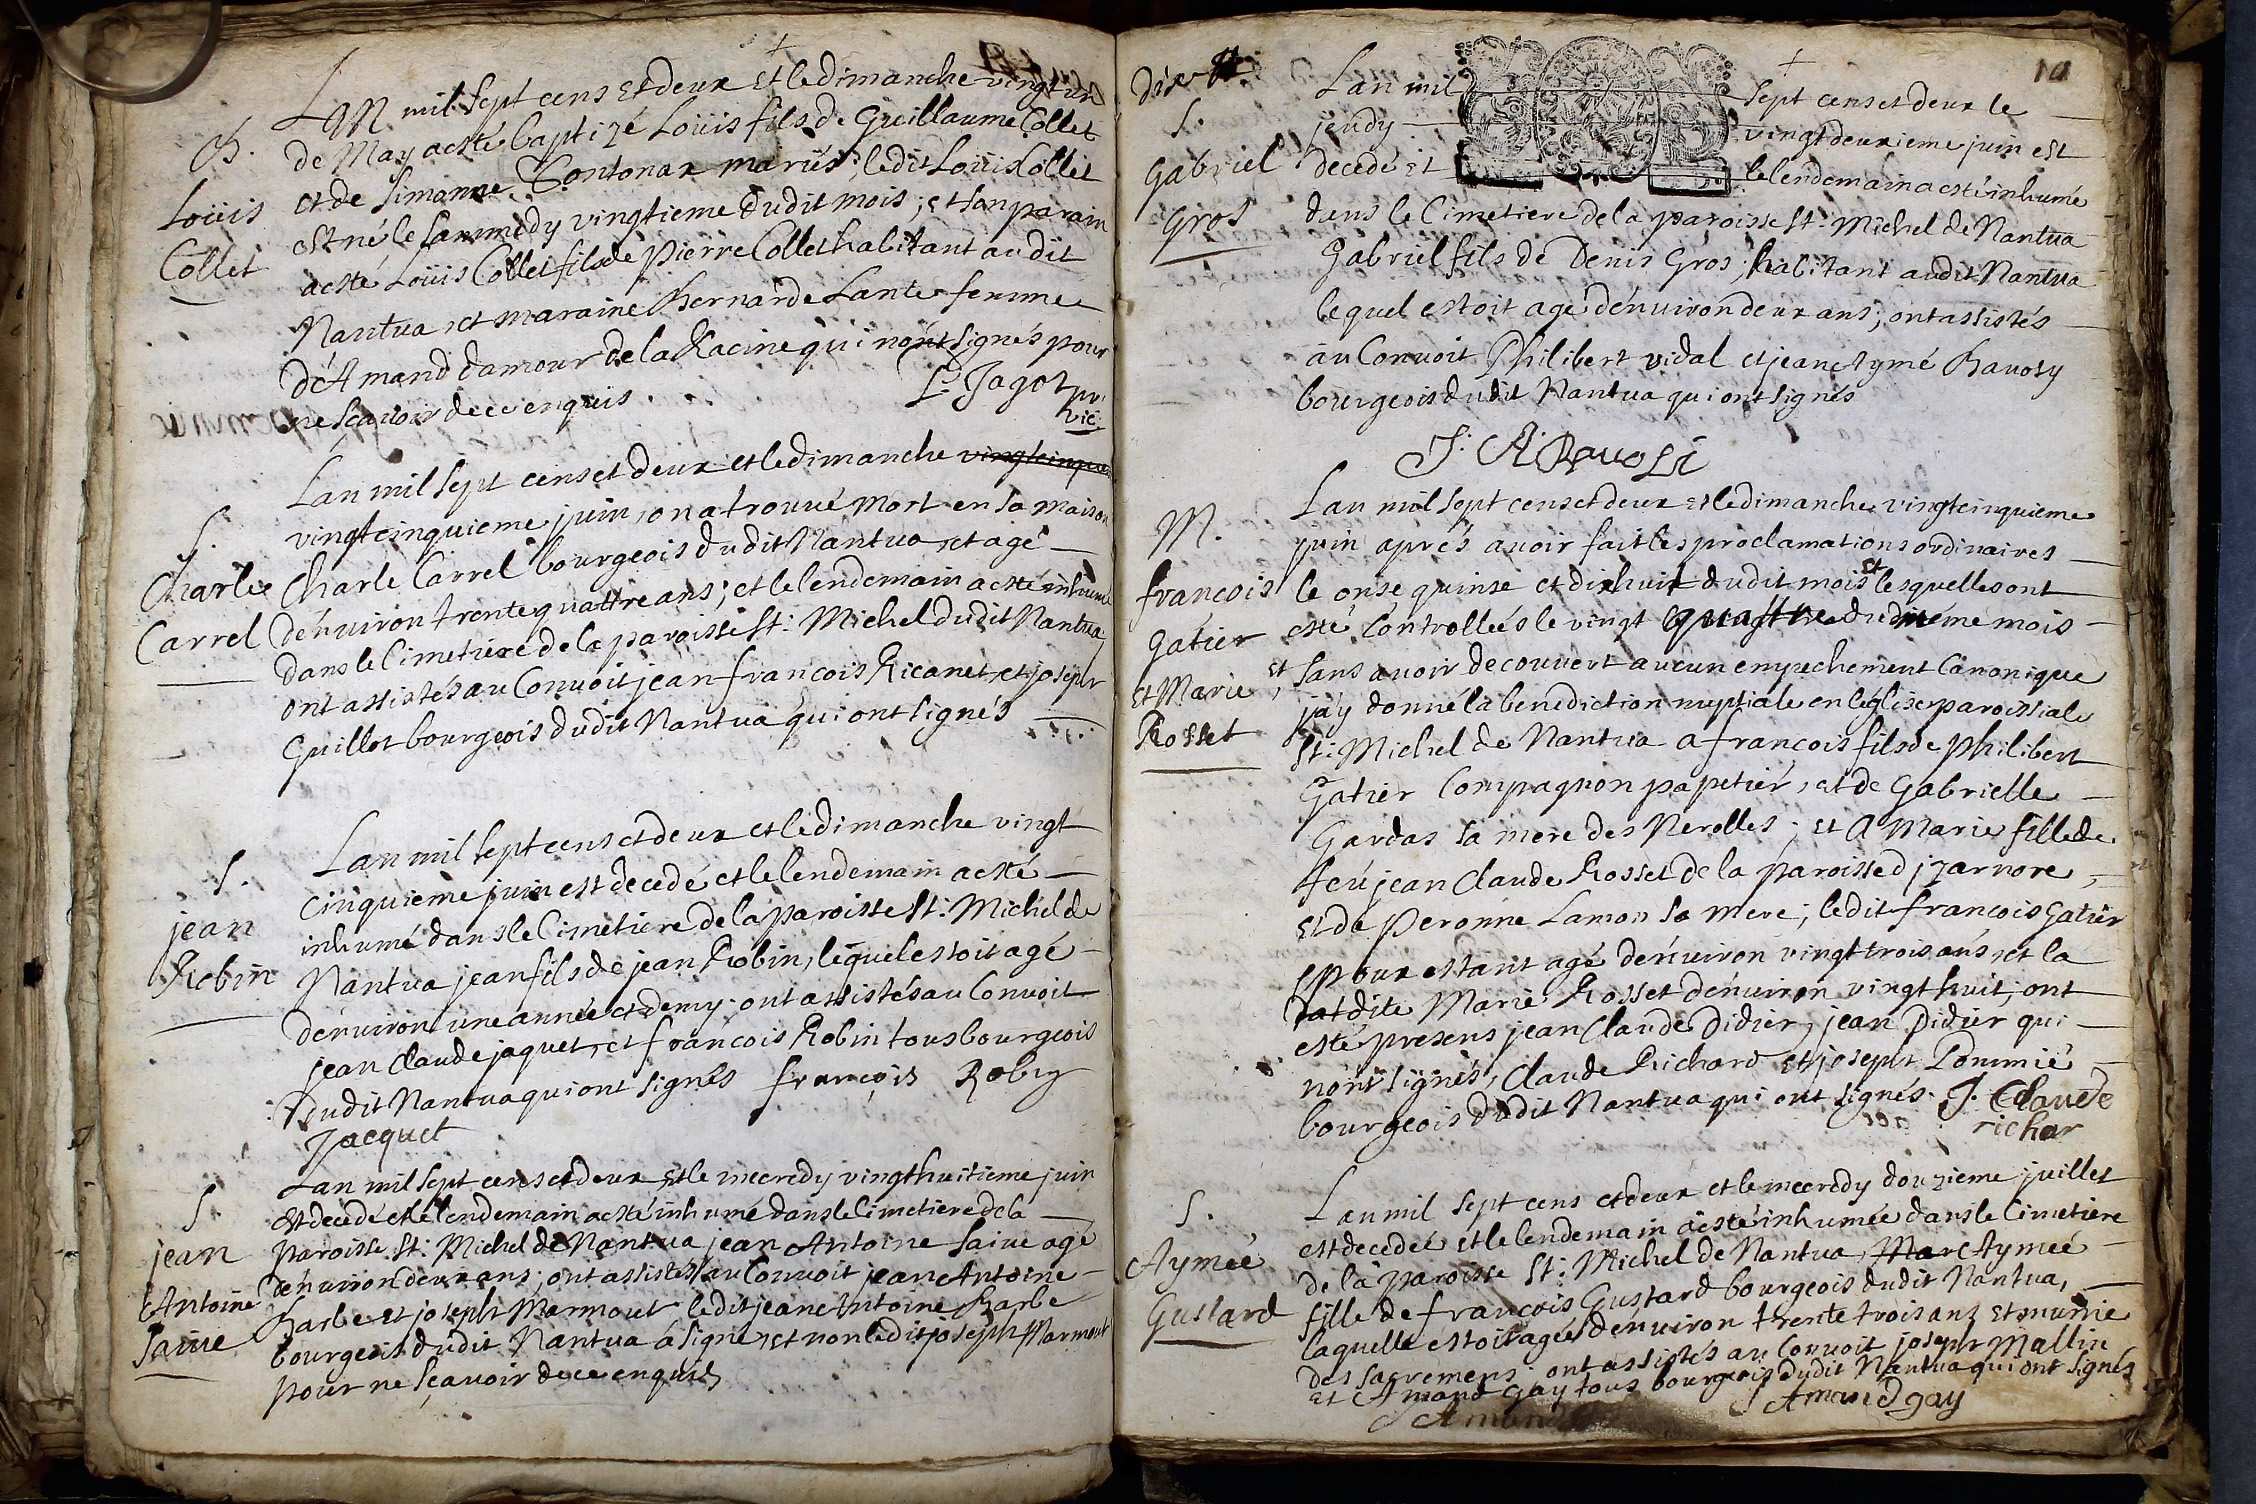 B.
Loüis
Collet
Lan mil sept cens et deux et le dimanche vingt un
de May a esté baptizé Loüis fils de Guillaume Collet
et de Simonne mariés; ledit Loüis Collet
est né le sammedy vingtieme dudit mois; et son parain
a esté Loüis Collet fils de Pierre Collet habitant audit
Nantua et maraine Bernarde Lante femme
d'Amand damour de la Racine qui nont signés pour
ne sçavoir de ce enquis.
Jagot
vic.
S.
Charle
Carrel
Lan mil sept cens et deux et le dimanche vingtcinque
vingtcinquieme juin, on a trouvé mort en sa maison
Charle Carrel bourgeois dudit Nantua et agé
dénuiron trente quattre ans; et le lendemain a esté inhumé
dans le Cimetiere de la paroisse St: Michel dudit Nantua
ont assistés au Convoit jean francois Ricanet, et joseph
Guillot bourgeois dudit Nantua qui ont signés
S.
jean
Robin
Lan mil sept cens et deux et le dimanche vingt
cinquieme juin est decedé et le lendemain a esté
inhumé dans le Cimetiere de la paroisse St: Michel de
Nantua jean fils de jean Robin, lequel estoit agé
dénuiron une année et demy; ont assistés au Convoit
jean Claude jaquet, et francois Robin tous bourgeois
dudit Nantua qui ont signés françois Robin
Jacquet
S
jean
Antoine
Saive
Lan mil sept cens et deux et le mecredy vingthuitieme juin
est decedé et le lendemain a esté inhumé dans le Cimetiere de la
paroisse St: Michel de Nantua jean Antoine Saive agé
dénuiron deux ans; ont assistés au Convoit jean Antoine
Barbe et joseph Marmont ledit jean Antoine Barbe
bourgeois dudit Nantua à signé, et non ledit joseph Marmont
pour ne sçavoir de ce enquis
10
dix
S.
Gabriel
Gros
Lan mil sept cens et deux le
jeudy vingtdeuxieme juin est
decedé et le lendemain a esté inhumé
dans le Cimetiere de la paroisse St: Michel de Nantua
Gabriel fils de Denis Gros, habitant audit Nantua
lequel estoit agé dénuiron deux ans; ont assistés
au Convoit Philibert vidal et jean Aymé Ravosy
bourgeois dudit Nantua qui ont signés
J. A. Ravosi
M.
francois
Gatier
et Marie
Rosset
Lan mil sept cens et deux et le dimanche vingtcinquieme
juin aprés avoir fait les proclamations ordinaires
le onse quinse et dixhuit dudit mois et lesquelles ont
esté Controlleés le vingt quattre du méme mois
et sans avoir decouvert aucun empechement Canonique
j'ay donné la benediction nuptiale en léglise paroissiale
St: Michel de Nantua a francois fils de philibert
Gatier Compagnon papetier, et de Gabrielle
Gardas sa mere des Nerolles; et a Marie fille de
feü jean Claude Rosset de la paroisse d'jzarnore,
et de Peronne Lamon sa mere; ledit francois Gatier
epoux estant agé dénuiron vingt trois ans, et la
ditte Marie Rosset dénuiron vingt huit; ont
esté presens jean Claude Didier, jean Didier qui
nont signés, Claude Richard et joseph Pommié
bourgeois dudit Nantua qui ont signés. J. Claude
richar
S.
Aymeé
Gustard
Lan mil sept cens et deux et le mecredy douzieme juillet
est decedeé et le lendemain a esté inhumée dans le Cimetiere
de la paroisse St: Michel de Nantua, Mar Aymeé
fille de francois Gustard bourgeois dudit Nantua,
laquelle estoit agée dénuiron trente trois ans et munie
des sacremens; ont assistés au Convoit joseph Mallin
et Amand Gay tous bourgeois dudit Nantua qui ont signés
Amand gay